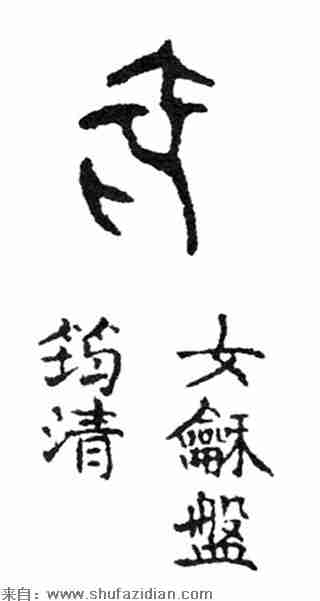 女龢盤
筠清
来自：www.shufazidian.com